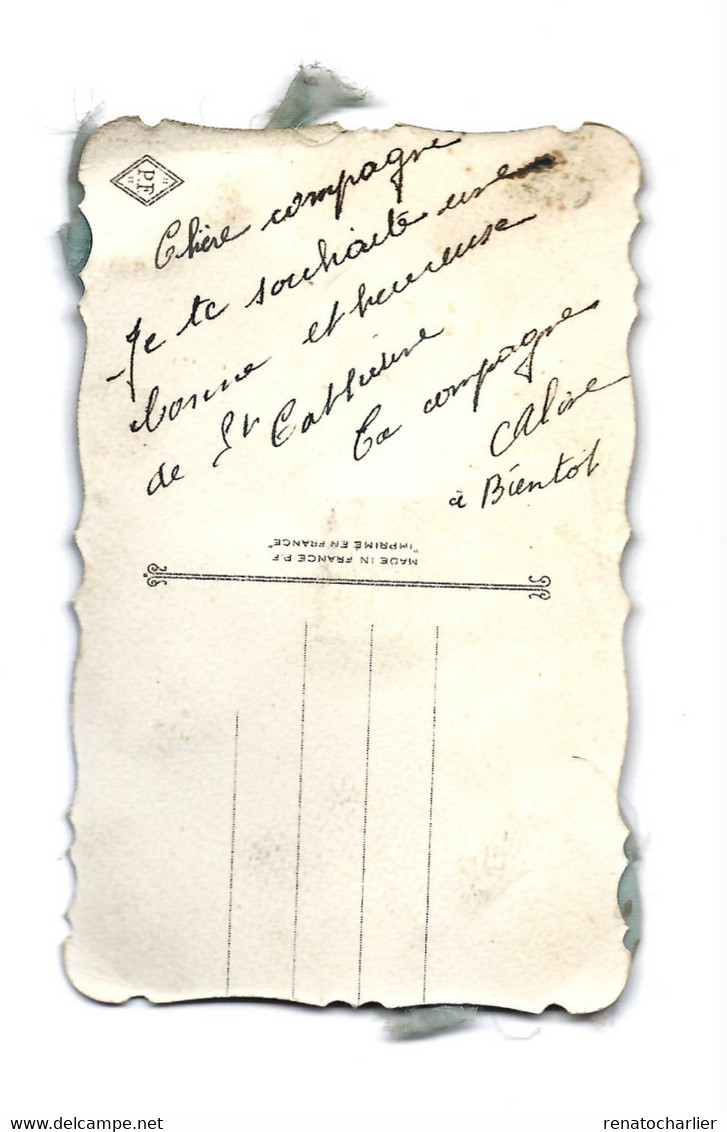 P.F
Chère compagne
Je te souhaite une
bonne et heureuse
de St Catherine
Ta compagne
Aline
à Bientot
MADE IN FRANCE P.F
"IMPRIMÉ EN FRANCE"
renatocharlier